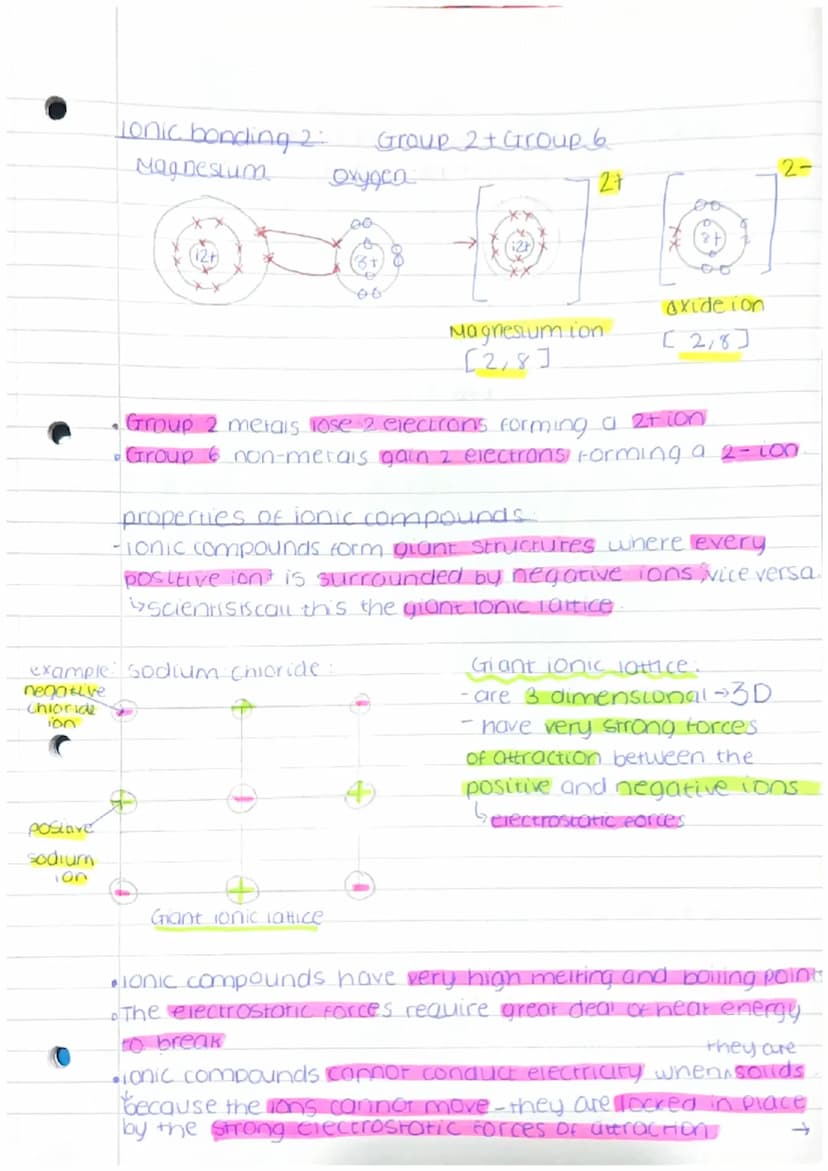 ionic bonding 2: Group 2 + Group 6
Magnesium oxygen
2+
2-
12+
8+
12+
8+
Magnesium ion
[2,8]
oxide ion
[2,8]
• Group 2 metals lose 2 electrons forming a 2+ ion
• Group 6 non-metals gain 2 electrons forming a 2- ion
properties of ionic compounds:
- ionic compounds form giant structures where every
positive ion is surrounded by negative ions, vice versa
↳ scientists call this the giant ionic lattice
example: sodium chloride:
negative
chloride
ion
positive
sodium
ion
Giant ionic lattice
Giant ionic lattice:
- are 3 dimensional → 3D
- have very strong forces
of attraction between the
positive and negative ions
↳ electrostatic forces
• ionic compounds have very high melting and boiling point
• The electrostatic forces require great deal of heat energy
to break
they are
• ionic compounds cannot conduct electricity when ^ solids
because the ions cannot move - they are locked in place
by the strong electrostatic forces of attraction →